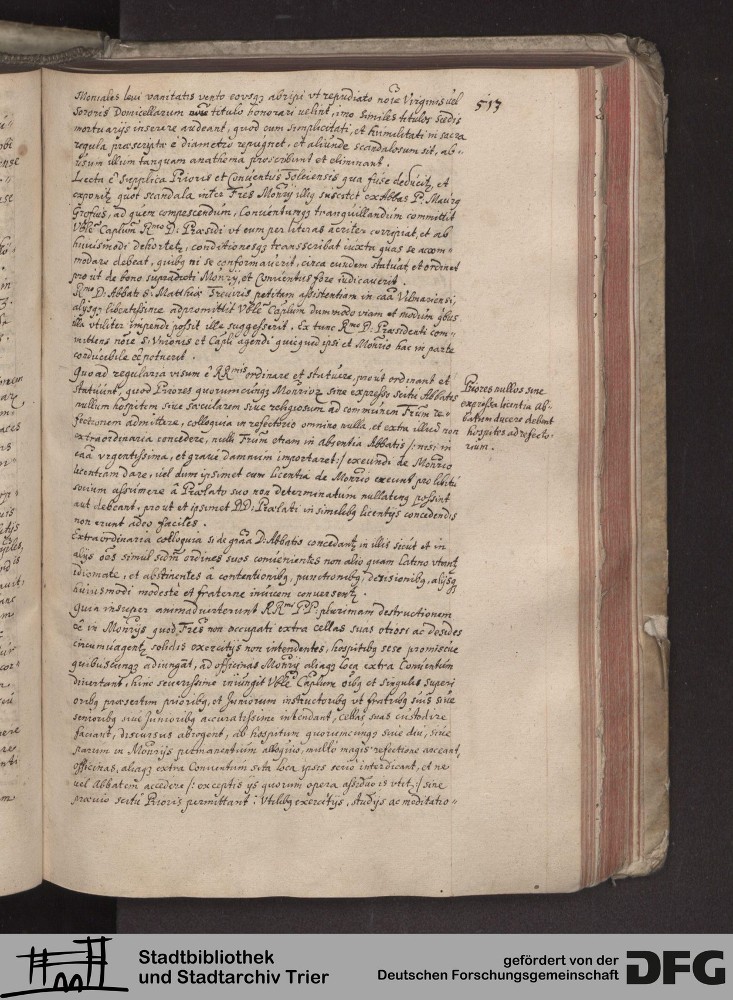 513
Moniales levi vanitatis vento eousq3 abripi vt repudiato noie Virginis vel
Sororis Domicellarum titulo honorari velint, imo similes titulos Scedis
mortuarijs inserere audeant, quod cum simplicitati, et humilitati in sacra
regula præscriptæ è diametro repugnet, et aliunde scandalosum sit, ab-
usum illum tanquam anathema proscribunt et eliminant.
Lecta ē supplica Prioris et Conventus Toleiensis qua fuse deducit, et
exponit quot scandala inter Frēs Monrij illis suscitet exAbbas P. Maurg
Grofius, ad quem compescendum, Conventumq3 tranquillandum committit
Vble Caplum Rmo D: Præsidi vt eum per literas acriter corripiat, et ab
huiusmodi dehortet, conditionesq3 transscribat iuxta quas se accom-
modare debeat, quibg ni se conformaverit, circa eundem statuat, et ordinet
prout de bono supradicti Monrij, et Conventus fore iudicaverit.
Rmo D: Abbati S: Matthiæ Treviris petitam assistentiam in caā Vilmariensi,
alijsq3 libentissime adpromittit Vble Caplum dummodo viam et modum qbus
illa vtiliter impendi possit ille suggesserit. Ex tunc Rmo D: Præsidenti com-
mittens noie S: Vnionis et Capli agendi quicquid ipsi et Monrio hac in parte
conducibile
Quo ad regularia visum ē RRmis ordinare et statuere, prout ordinant et
statuunt, quod Priores quorumcunq3 Monriorz sine expresso scitu Abbatis
nullum hospitem sive sæcularem sive religiosum ad communem Frum re-
fectionem admittere, colloquia in refectorio omnino nulla, et extra illud non
extraordinaria concedere, nulli Frum etiam in absentia Abbatis /: nisi in
caā vrgentissima, et grave damnum importaret :/ exeundi de Monrio
licentiam dare, vel dum ipsimet cum licentia de Monrio exeunt pro libitu
socium assumere à Prælato suo non determinatum nullateng possint
aut debeant, prout et ipsimet DD: Prælati in similibg licentijs concedendis
non erunt adeo faciles.
Priores nullos sine
expressa licentia Ab-
batum ducere debent
hospites ad refecto-
rium.
Extraordinaria colloquia si de gratia D: Abbatis concedant, in illis sicut et in
alijs oēs simul ordines suos convenientes non alio quam latino vtant
idiomate, et abstinentes à contentionibg, punctionibg, derisionibg, alijsq
huiusmodi modeste et fraterne invicem conversent.
Quia insuper animadverterunt RRmi PP: plurimam destructionem
ēē in Monrijs quod Frēs non occupati extra cellas suas otiosi ac desides
circumvagent, solidis exercitijs non intendentes, hospitibg sese promiscue
quibuscunq3 adiungāt, ad officinas Monrij aliaq3 loca extra Conventum
divertant, hinc severissime iniungit Vble Caplum oibg et singulis superi
oribg præsertim prioribg, et Iuniorum instructoribg vt fratribg suis sive
senioribg sive Iunioribg accuratissime intendant, cellas suas custodire
faciant, discursus abrogent, ab hospitum quorumcunq3 sive diu, sive
parum in Monrijs permanentium alloquio, multo magis refectione arceant,
officinas, aliaq3 extra Conventum sita loca ipsis serio interdicant, et ne
vel Abbatem accedere /: exceptis ijs quorum opera assiduo is vtit :/ sine
prævio scitu Prioris permittant: Vtilibg exercitijs, studijs ac meditatio-
Stadtbibliothek
und Stadtarchiv Trier
gefördert von der
Deutschen Forschungsgemeinschaft
DFG